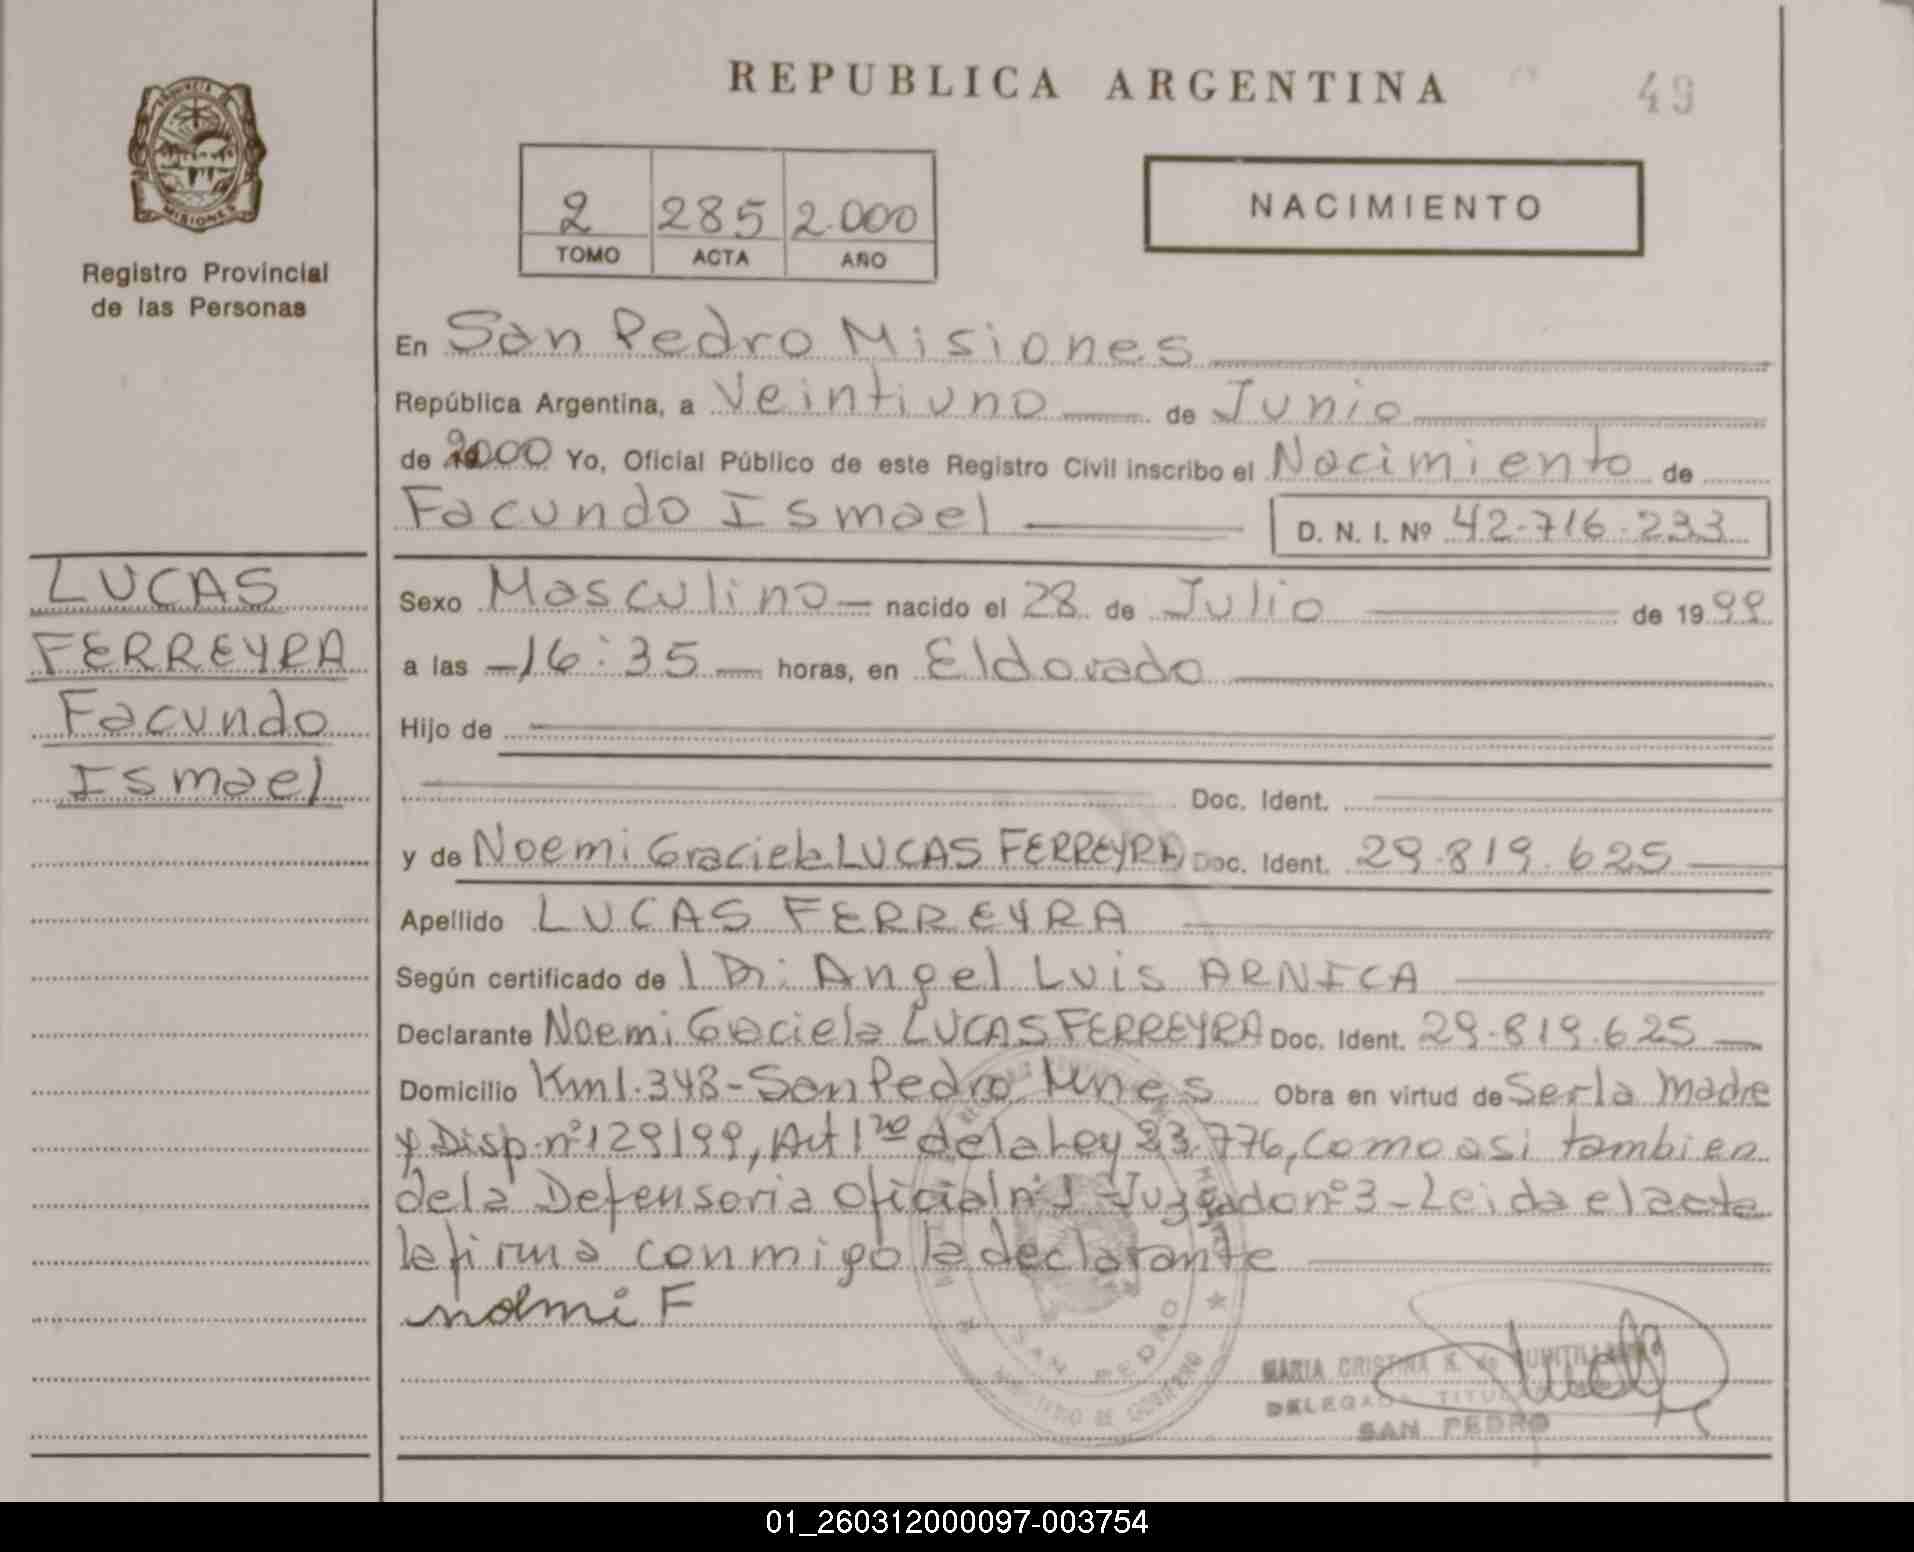 REPUBLICA ARGENTINA
49
PROVINCIA
MISIONES
Registro Provincial
de las Personas
2 285 2.000
TOMO ACTA AÑO
NACIMIENTO
En San Pedro Misiones
República Argentina, a Veintiuno de Junio
de 2000 Yo, Oficial Público de este Registro Civil inscribo el Nacimiento de
Facundo Ismael D. N. I. Nº 42.716.233
LUCAS
FERREYRA
Facundo
Ismael
Sexo Masculino nacido el 28 de Julio de 1999
a las 16:35 horas, en Eldorado
Hijo de
Doc. Ident.
y de Noemi Graciela LUCAS FERREYRA Doc. Ident. 29.819.625
Apellido LUCAS FERREYRA
Según certificado de Angel Luis ARNICA
Declarante Noemi Graciela LUCAS FERREYRA Doc. Ident. 29.819.625
Domicilio Km 1.348-San Pedro Mnes Obra en virtud de Ser la Madre
y Disp. nº 129/99, Art 1ro de la Ley 23.776, como asi tambien
de la Defensoria Oficial nº 1 Juzgado nº 3 - Leida el acta
la firma conmigo la declarante
noemi F
SAN PEDRO
MINISTERIO DE GOBIERNO
MARIA CRISTINA K. de
DELEGADA TITULAR
SAN PEDRO
01_260312000097-003754